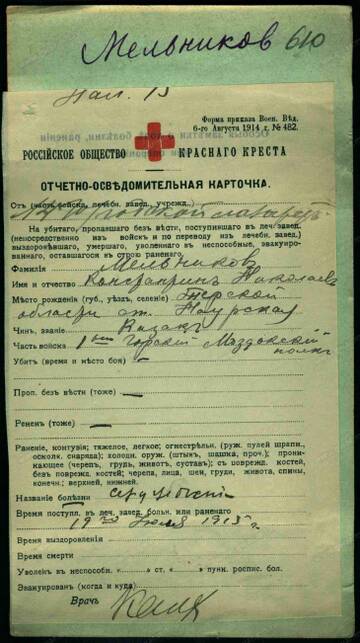 Мельников 610
Форма приказа Воен. Вѣд.
6-го Августа 1914 г. № 482.
РОССІЙСКОЕ ОБЩЕСТВО КРАСНАГО КРЕСТА
ОТЧЕТНО-ОСВѢДОМИТЕЛЬНАЯ КАРТОЧКА.
Отъ (часть войска, лечебн. завед., учрежд.)
На убитаго, пропавшаго безъ вѣсти, поступившаго въ леч. завед.
(непосредственно изъ войскъ и по переводу из лечебн. завед.)
выздоровѣвшаго, умершаго, уволеннаго въ неспособные, эвакуиро-
ваннаго, оставшагося въ строю раненаго.
Фамилія Мельников
Имя и отчество Константинъ Николаев
Мѣсто рожденія (губ., уѣздъ, селеніе) Терской
области ст. Наурская
Чинъ, званіе Казакъ
Часть войска 1ый Горский Моздокский
полкъ
Убитъ (время и мѣсто боя) —
Проп. безъ вѣсти (тоже) —
Раненъ (тоже) —
Раненіе, контузія; тяжелое, легкое; огнестрѣльн. (руж. пулей шрапн.,
осколк. снаряда); холодн. оруж. (штыкъ, шашка, проч.); прони-
кающее (черепъ, грудь, животъ, суставъ); съ поврежд. костей,
безъ поврежд. костей; черепа, лица, шеи, груди, живота, спины,
конечн.; верхней, нижней.
Названіе болѣзни
Время поступл. въ леч. завед. больн. или раненаго
19го Іюля 1915 г.
Время выздоровленія
Время смерти
Уволенъ въ неспособн. « » ст. « » пункт. роспис. бол.
Эвакуированъ (когда и куда)
Врачъ